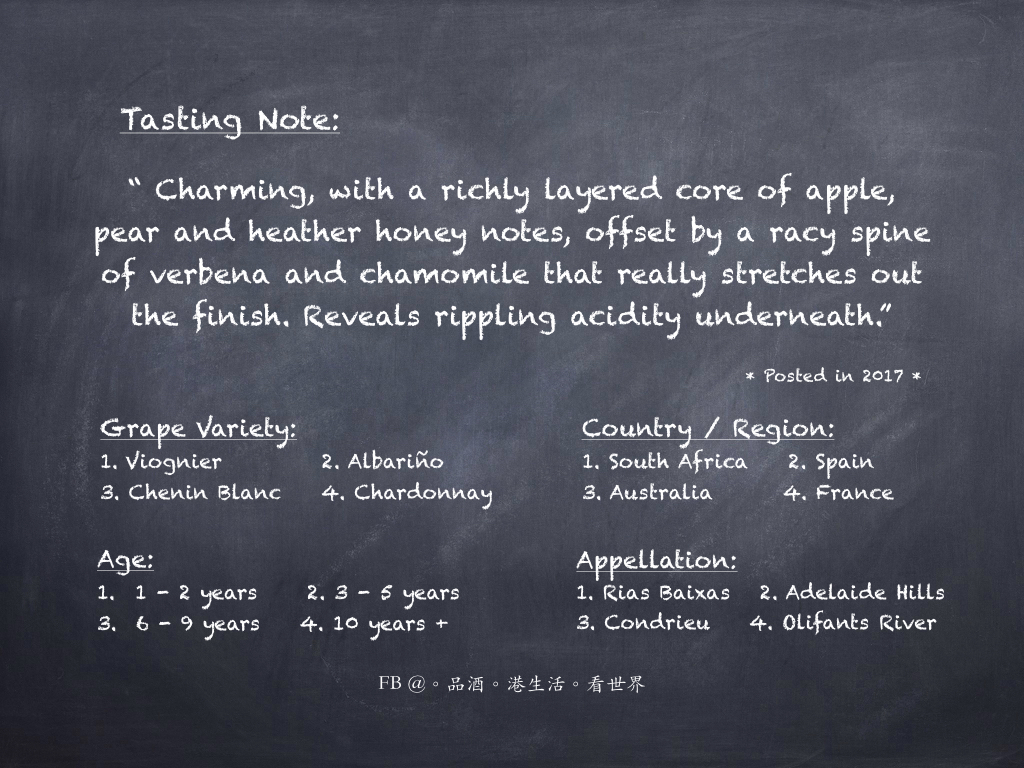 Tasting Note:
“ Charming, with a richly layered core of apple,
pear and heather honey notes, offset by a racy spine
of verbena and chamomile that really stretches out
the finish. Reveals rippling acidity underneath.”
* Posted in 2017 *
Grape Variety:
1. Viognier 2. Albariño
3. Chenin Blanc 4. Chardonnay
Country / Region:
1. South Africa 2. Spain
3. Australia 4. France
Age:
1. 1 - 2 years 2. 3 - 5 years
3. 6 - 9 years 4. 10 years +
Appellation:
1. Rias Baixas 2. Adelaide Hills
3. Condrieu 4. Olifants River
FB @。品酒。港生活。看世界